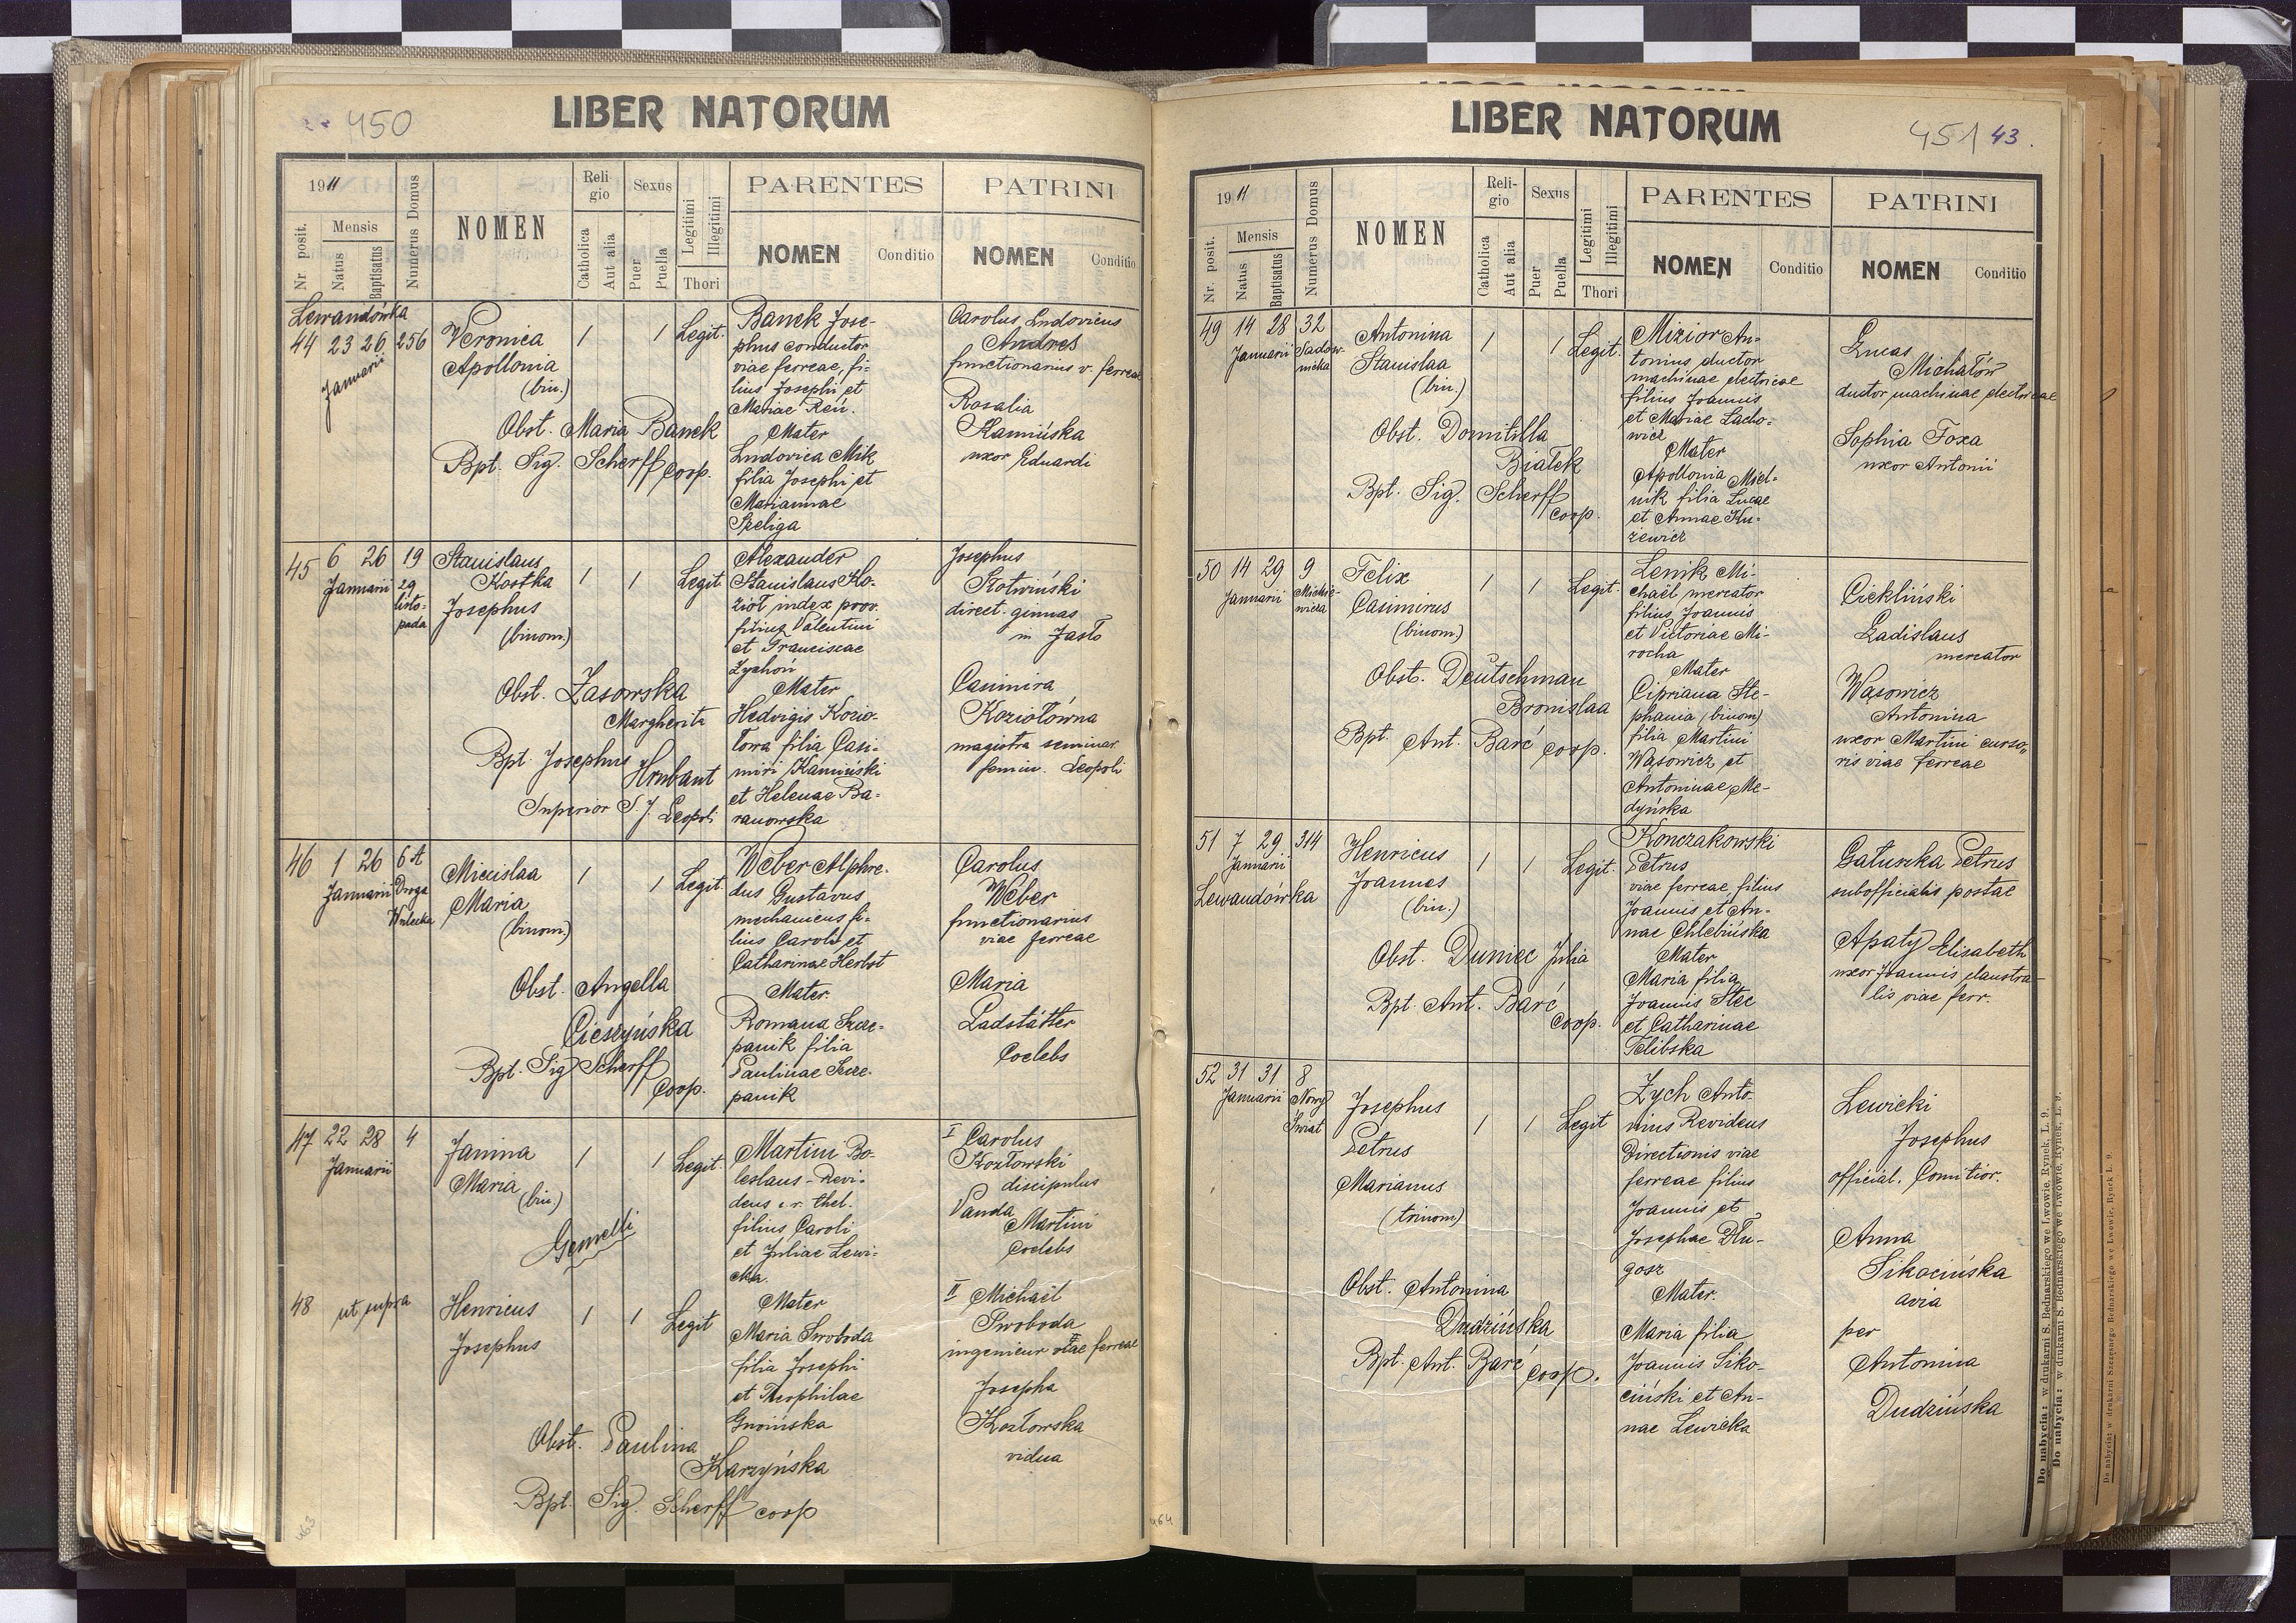 450
LIBER NATORUM
1911
Nr posit.
Mensis
Natus
Baptisatus
Numerus Domus
NOMEN
Religio
Catholica
Aut alia
Sexus
Puer
Puella
Legitimi
Illegitimi
Thori
PARENTES
NOMEN Conditio
PATRINI
NOMEN Conditio
Lewandówka
44 23 26 256
Januarii
Veronica
Apollonia
(bin.)
1 1 Legit.
Obst. Maria Banek
Bpt. Sig. Scherff coop.
Banek Jose-
phus conductor
viae ferreae, fi-
lius Josephi et
Mariae Reń.
Mater
Ludovica Mik
filia Josephi et
Mariannae
Szeliga
Carolus Ludovicus
Andres
functionarius v. ferreae
Rosalia
Kamińska
uxor Eduardi
45 6 26 19
Januarii 29
listo-
pada
Stanislaus
Kostka
Josephus
(binom.)
1 1 Legit
Obst. Zasowska
Margherita
Bpt. Josephus
Hrubant
Superior S. J. Leopoli
Alexander
Stanislaus Ko-
zioł index prov.
filius Valentini
et Franciscae
Zychoń
Mater
Hedvigis Kozio-
łowa filia Casi-
miri Kamiński
et Helenae Ba-
ranowska
Josephus
Słotwiński
direct. gimnas
in Jasło
Casimira
Koziołówna
magistra seminar.
femin. Leopoli
46 1 26 6A
Januarii Droga
Wulecka
Miecislaa
Maria
(binom.)
1 1 Legit.
Obst. Angella
Cieszyńska
Bpt. Sig Scherff
Coop.
Weber Alphre-
dus Gustavus
mechanicus fi-
lius Caroli et
Catharinae Herbst
Mater.
Romana Szcze-
panik filia
Paulinae Szcze-
panik
Carolus
Weber
functionarius
viae ferreae
Maria
Ladstätter
Coelebs
47 22 28 4
Januarii
Janina
Maria
(bin.)
1 1 Legit.
Gemelli
Martini Bo-
leslaus - Revi-
dens c. r. thel.
filius Caroli
et Juliae Lewi-
cka.
I Carolus
Kozłowski
discipulus
Vanda
Martini
Coelebs
48 ut supra
Henricus
Josephus
1 1 Legit
Mater
Maria Swoboda
filia Josephi
et Theophilae
Gnoińska
II Michaël
Swoboda
ingenieur viae ferreae
Josepha
Kozłowska
vidua
Obst. Paulina
Karzyńska
Bpt. Sig. Scherff coop
463
451 43.
LIBER NATORUM
1911
Nr. posit.
Mensis
Natus
Baptisatus
Numerus Domus
NOMEN
Religio
Catholica
Aut alia
Sexus
Puer
Puella
Legitimi
Illegitimi
Thori
PARENTES
NOMEN Conditio
PATRINI
NOMEN Conditio
49 14 28 32
Januarii Sadow-
nicka
Antonina
Stanislaa
(bin.)
1 1 Legit.
Obst. Domitilla
Białek
Bpt. Sig. Scherff
coop.
Mizior An-
tonius, ductor
machinae electricae
filius Joannis
et Mariae Lacho-
wicz
Mater
Apollonia Miel-
nik filia Lucae
et Annae Ku-
zewicz
Lucas
Michałów
ductor machinae electricae
Sophia Foxa
uxor Antonii
50 14 29 9
Januarii Mickie-
wicza
Felix
Casimirus
(binom.)
1 1 Legit.
Obst. Deutschman
Bronislaa
Bpt. Ant. Barć coop.
Lenik Mi-
chaël mercator
filius Joannis
et Victoriae Mi-
rocha
Mater
Cipriana Ste-
phania (binom)
filia Martini
Wąsowicz et
Antoninae Me-
dyńska
Ciekliński
Ladislaus
mercator
Wąsowicz
Antonina
uxor Martini curso-
ris viae ferreae
51 7 29 314
Januarii
Lewandówka
Henricus
Joannes
(bin.)
1 1 Legit.
Obst. Duniec Julia
Bpt. Ant. Barć
coop.
Konczakowski
Petrus
viae ferreae, filius
Joannis et An-
nae Chlebińska
Mater
Maria filia
Joannis Stec
et Catharinae
Telibska
Gałuszka Petrus
subofficialis postae
Apaty Elisabeth
uxor Joannis claustra-
lis viae ferr.
52 31 31 8
Januarii Nowy
Świat
Josephus
Petrus
Marianus
(trinom)
1 1 Legit
Obst. Antonina
Dudzińska
Bpt. Ant. Barć coop.
Zych Anto-
nius Revidens
Directionis viae
ferreae filius
Joannis et
Josephae Dłu-
gosz
Mater.
Maria filia
Joannis Siko-
ciński et An-
nae Lewicka
Lewicki
Josephus
official. Comitior.
Anna
Sikocińska
avia
per
Antonina
Dudzińska
464
Do nabycia: w drukarni S. Bednarskiego we Lwowie, Rynek, L. 9.
Do nabycia: w drukarni S. Bednarskiego we Lwowie, Rynek, L. 9.
Do nabycia: w drukarni Szczęsnego Bednarskiego we Lwowie, Rynek L. 9.